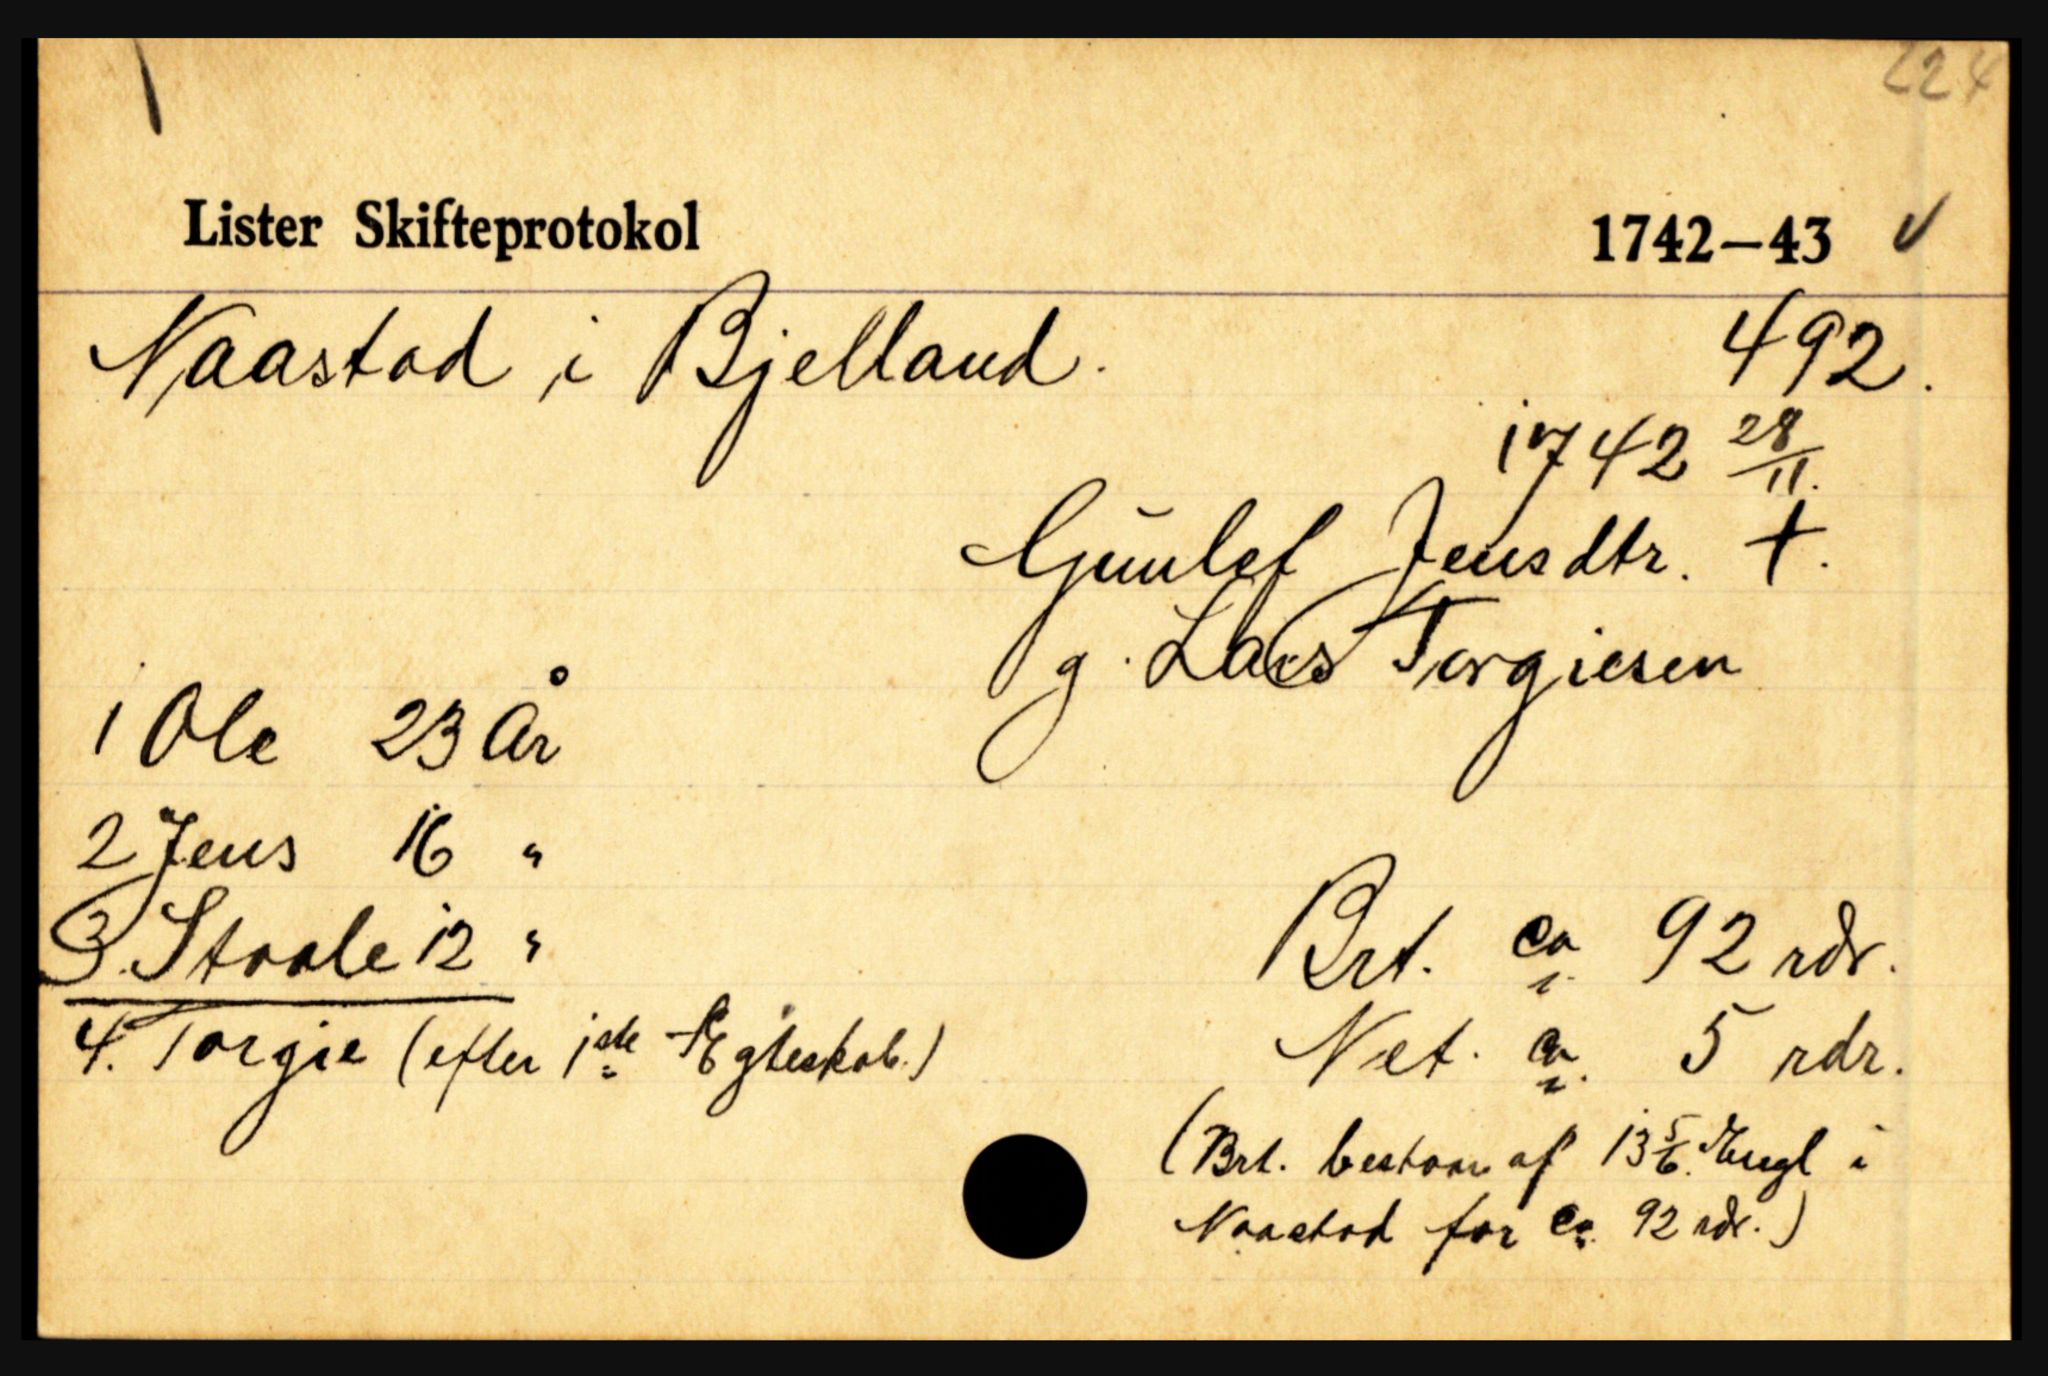 224
Lister Skifteprotokol 1742–43
Naastad i Bjelland. 492.
1742 28/11.
Gunlef Jensdtr. †.
g. Lars Torgiesen
1 Ole 23 År
2 Jens 16 "
3. Staale 12 "
4. Torgie (efter 1ste Egteskab.)
Brt. ca 92 rdr.
Net. ca. 5 rdr.
(Brt. bestaar af 13 5/6 Engl i
Naastad for ca. 92 rdr.)